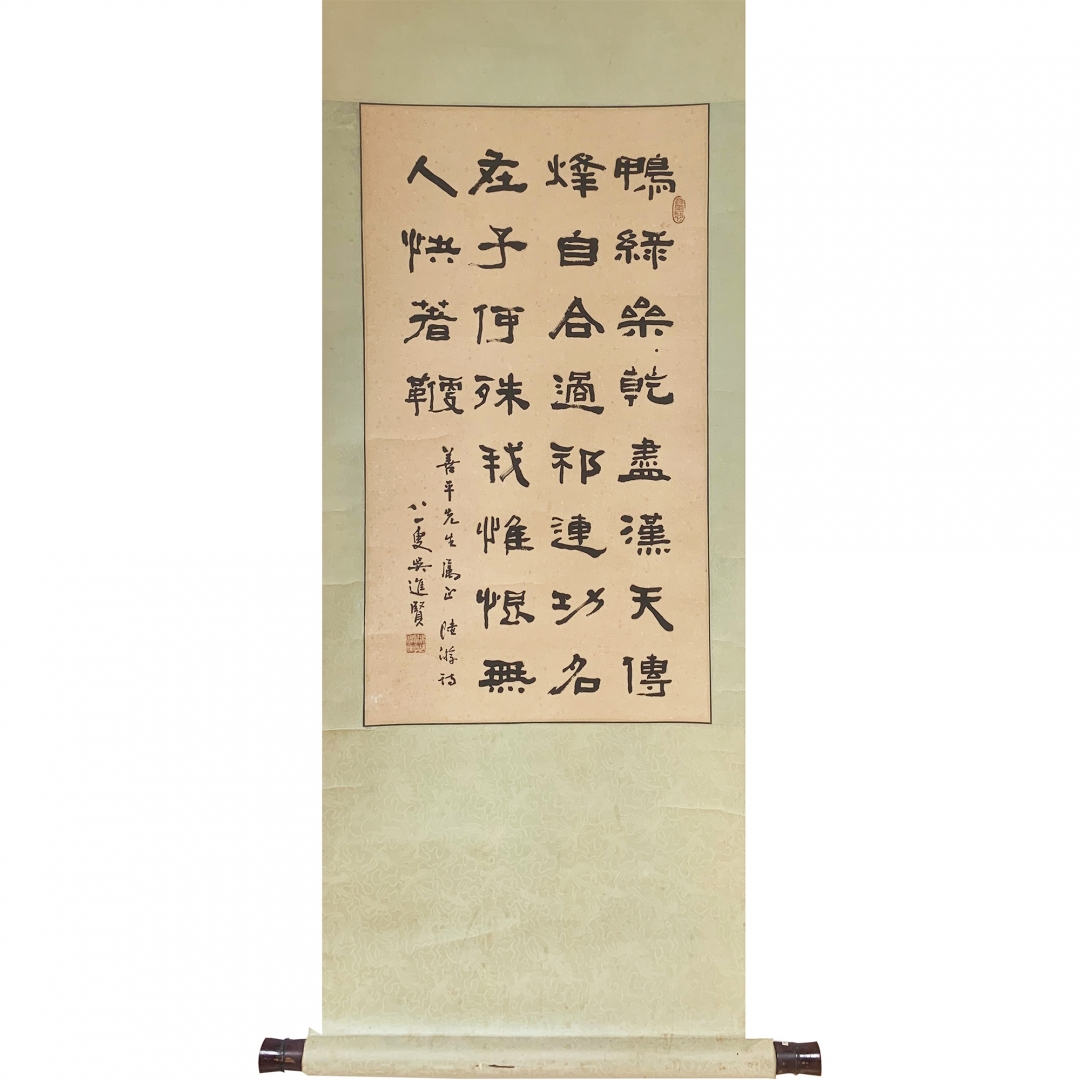 鴨綠桑乾盡漢天傳
烽自合過祁連功名
在子何殊我惟恨無
人快著鞭
善平先生属正 陸游詩
八一叟吳進賢